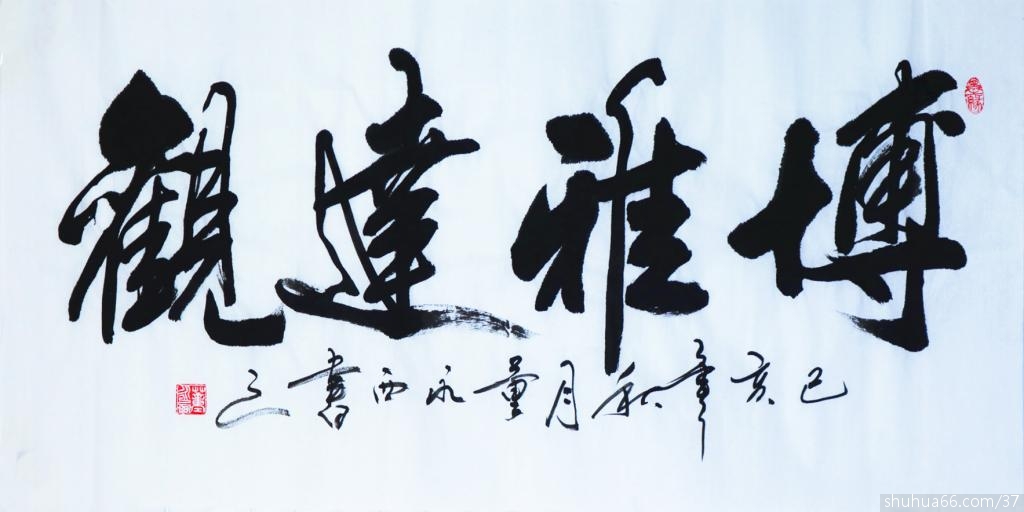 博雅達觀
己亥年秋月董永西書之
shuhua66.com/37